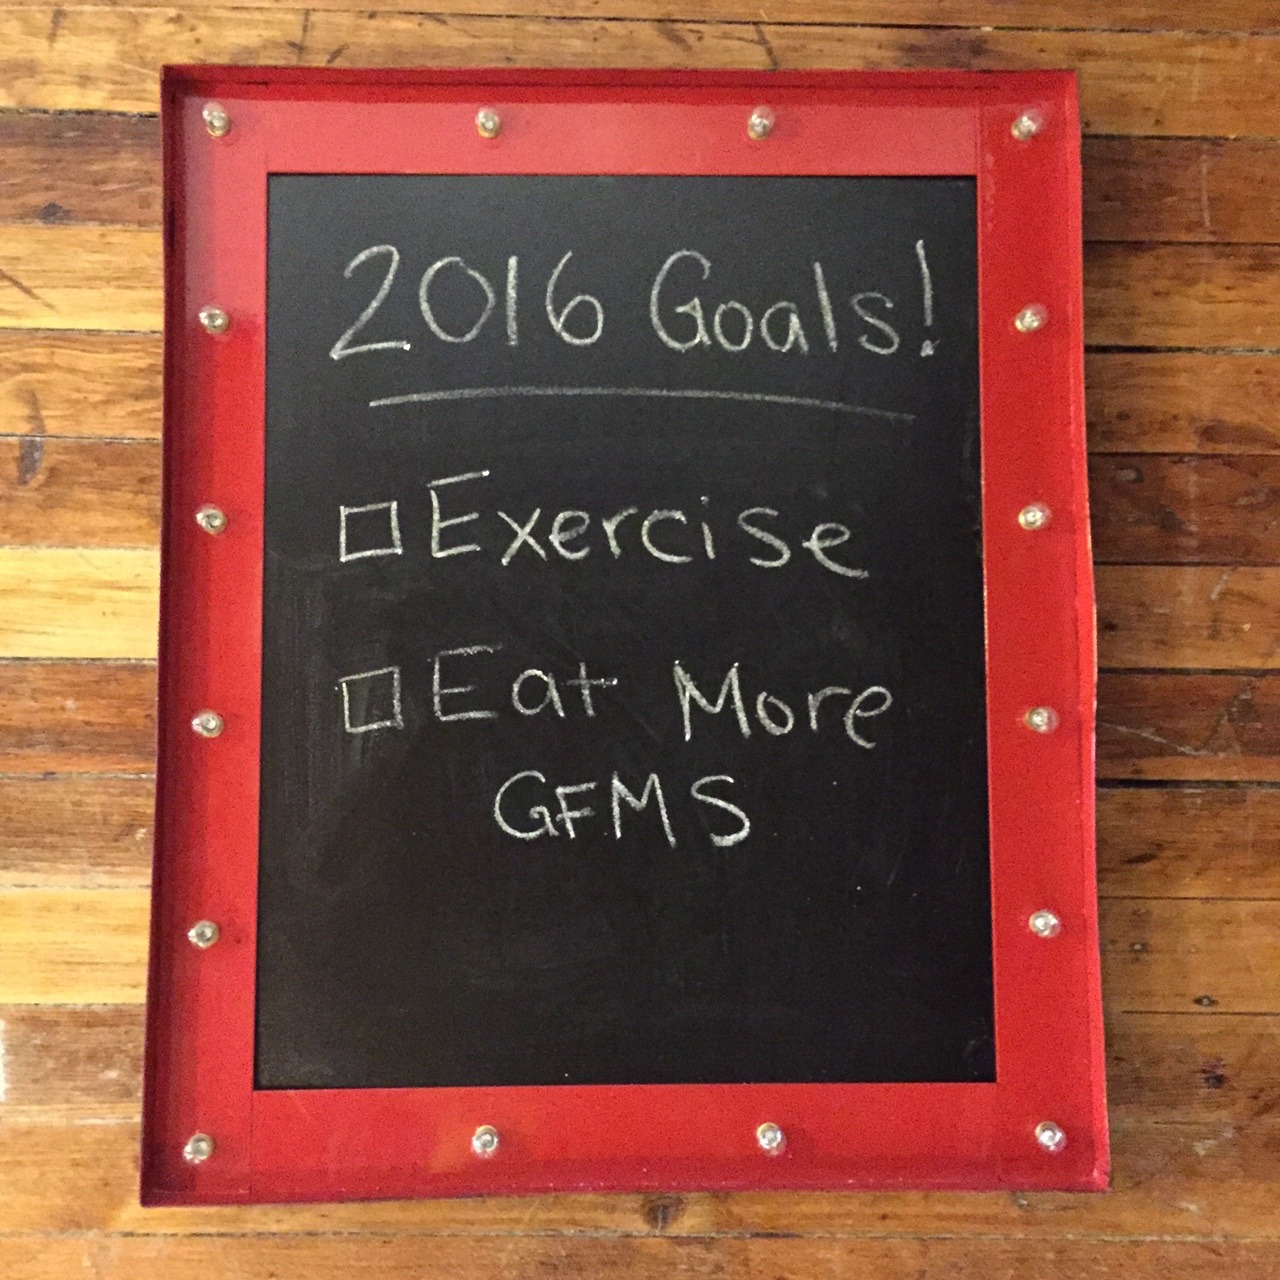 2016 Goals!
Exercise
Eat More
GFMS